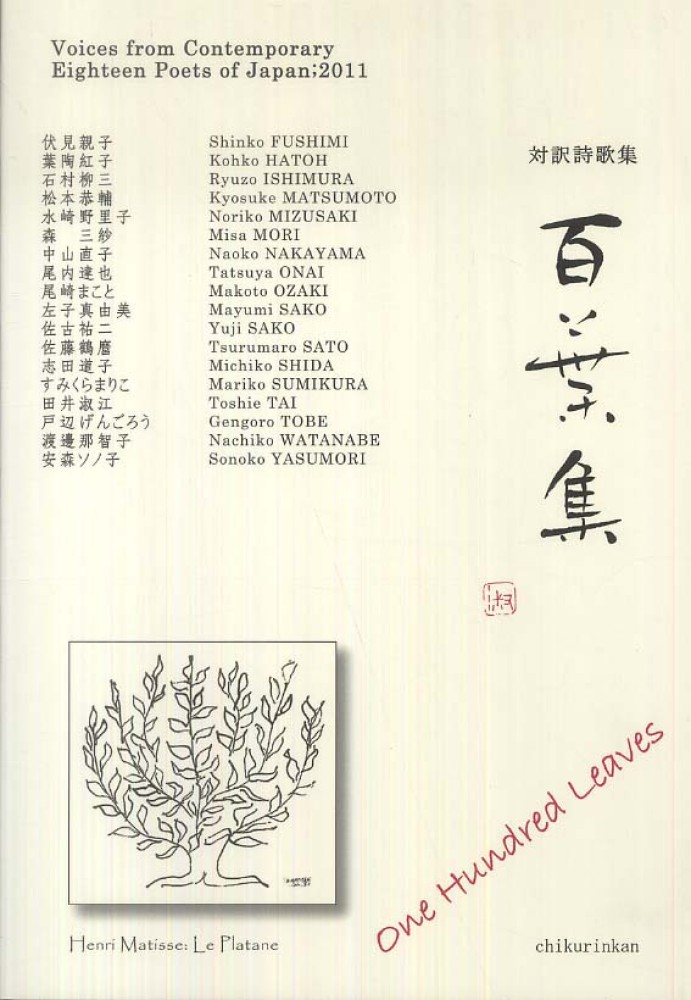 Voices from Contemporary
Eighteen Poets of Japan;2011
伏見親子 Shinko FUSHIMI
葉陶紅子 Kohko HATOH
石村柳三 Ryuzo ISHIMURA
松本恭輔 Kyosuke MATSUMOTO
水崎野里子 Noriko MIZUSAKI
森　三紗 Misa MORI
中山直子 Naoko NAKAYAMA
尾内達也 Tatsuya ONAI
尾崎まこと Makoto OZAKI
左子真由美 Mayumi SAKO
佐古祐二 Yuji SAKO
佐藤鶴麿 Tsurumaro SATO
志田道子 Michiko SHIDA
すみくらまりこ Mariko SUMIKURA
田井淑江 Toshie TAI
戸辺げんごろう Gengoro TOBE
渡邊那智子 Nachiko WATANABE
安森ソノ子 Sonoko YASUMORI
対訳詩歌集
百葉集
淑
One Hundred Leaves
Henri Matisse: Le Platane
chikurinkan